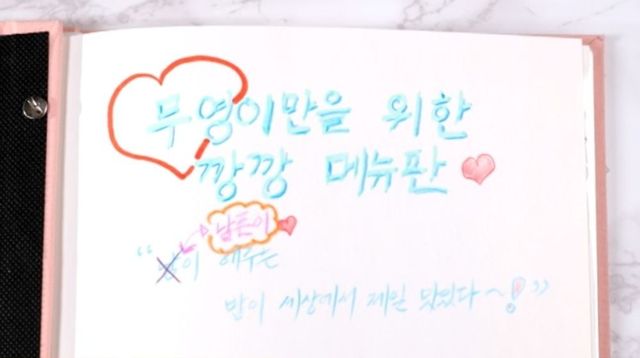 무영이만을 위한
깡깡 메뉴판
“이 해주는
밥이 세상에서 제일 맛있다~!”